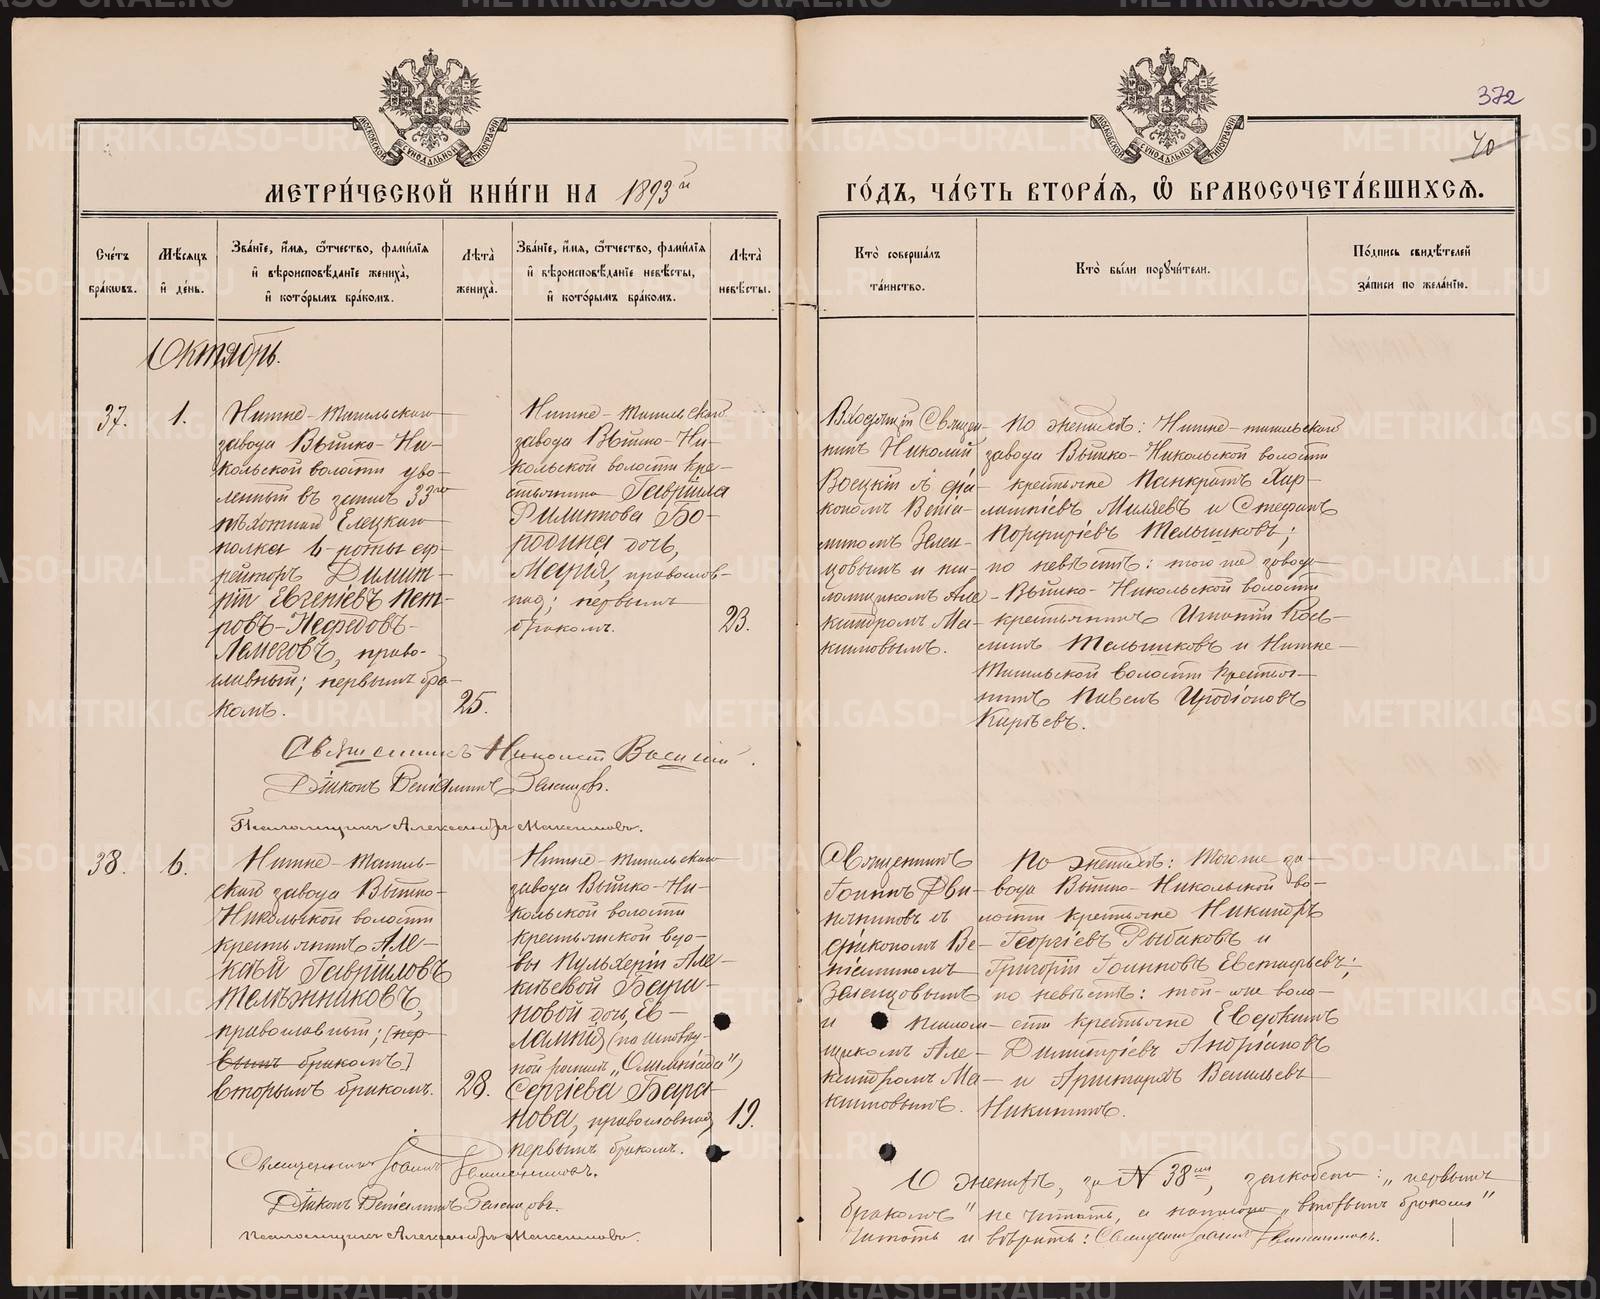 372
40
МОСКОВСКОЙ СѴНОДАЛЬНОЙ ТИПОГРАФІИ
МОСКОВСКОЙ СѴНОДАЛЬНОЙ ТИПОГРАФІИ
МЕТРИ́ЧЕСКОЙ КНИ́ГИ НА 1893й
ГО́ДЪ, ЧА́СТЬ ВТОРА́Я, Ѽ БРАКОСОЧЕТА́ВШИХСЯ.
Сче́тъ бра́кωвъ.
Мѣ́сяцъ и҆ де́нь.
Зва́нїе, и҆́мя, ѻ҆́тчество, фами́лїя и҆ вѣроисповѣ́данїе жениха̀, и҆ кото́рымъ бра́комъ.
Лѣта̀ жениха̀.
Зва́нїе, и҆́мя, ѻ҆́тчество, фами́лїя и҆ вѣроисповѣ́данїе невѣ́сты, и҆ кото́рымъ бра́комъ.
Лѣта̀ невѣ́сты.
Кто̀ соверша́лъ та́инство.
Кто̀ бы́ли поручи́тели.
По́дпись свидѣ́телей за́писи по жела́нїю.
Октябрь.
37.
1.
Нижне-Тагильскаго
завода Выйско-Ни-
кольской волости уво-
ленный въ запас 33го
пѣхотнаго Елецкаго
полка 6 роты еф-
рейторъ Димит-
рій Евгеніевъ Пет-
ровъ-Нефедовъ-
Ламеговъ, право-
славный; первымъ бра-
комъ.
25.
Нижне-Тагильскаго
завода Выйско-Ни-
кольской волости кре-
стьянина Гавріила
Филиппова Бо-
родина дочь,
Марія, православ-
ная; первымъ
бракомъ.
23.
Входящій Священ-
никъ Николай
Воецкій съ діа-
кономъ Веніа-
миномъ Зелен-
цовымъ и пса-
ломщикомъ Але-
ксандромъ Ма-
ксимовымъ.
По женихѣ: Нижне-тагильскаго
завода Выйско-Никольской волости
крестьяне Панкратъ Хар-
лампіевъ Миляевъ и Стефанъ
Порфиріевъ Мельшиковъ;
по невѣстѣ: того же завода
Выйско-Никольской волости
крестьянинъ Игнатій
Мельшиковъ и Нижне-
Тагильской волости крестья-
нинъ Павелъ Иродіоновъ
Киріевъ.
Священникъ Николай
Діаконъ Веніаминъ Зеленцовъ.
Псаломщикъ Александръ Максимовъ.
38.
6.
Нижне-Тагиль-
скаго завода Выйско-
Никольской волости
крестьянинъ Але-
ксѣй Гавріиловъ
Телѣжниковъ,
православный; [пер-
вымъ бракомъ]
вторымъ бракомъ.
28.
Нижне-Тагильскаго
завода Выйско-Ни-
кольской волости
крестьянской вдо-
вы Пульхеріи Але-
ксѣевой Бара-
новой дочь, Ев-
лампія (по исповѣд-
ной росписи „Олимпіада“)
Сергіева Бара-
нова, православная,
первымъ бракомъ.
19.
Священникъ
Іоаннъ Дви-
нянинновъ съ
діакономъ Ве-
ніаминомъ
Зеленцовымъ
и псалом-
щикомъ Але-
ксандромъ Ма-
ксимовымъ.
По женихѣ: того же за-
вода Выйско-Никольской во-
лости крестьяне Никандръ
Георгіевъ Рыбаковъ и
Григорій Іоанновъ Евстафьевъ;
по невѣстѣ: той-же воло-
сти крестьяне Евдокимъ
Димитріевъ Андріановъ
и Аристархъ Васильевъ
Никитинъ.
Священникъ Іоаннъ
Діаконъ Веніаминъ Зеленцовъ.
Псаломщикъ Александръ Максимовъ.
О женихѣ, за № 38мъ, зачеркнуто: „первымъ
бракомъ“ не читать, а написано „вторымъ бракомъ“
читать и вѣрить: Священникъ Іоаннъ